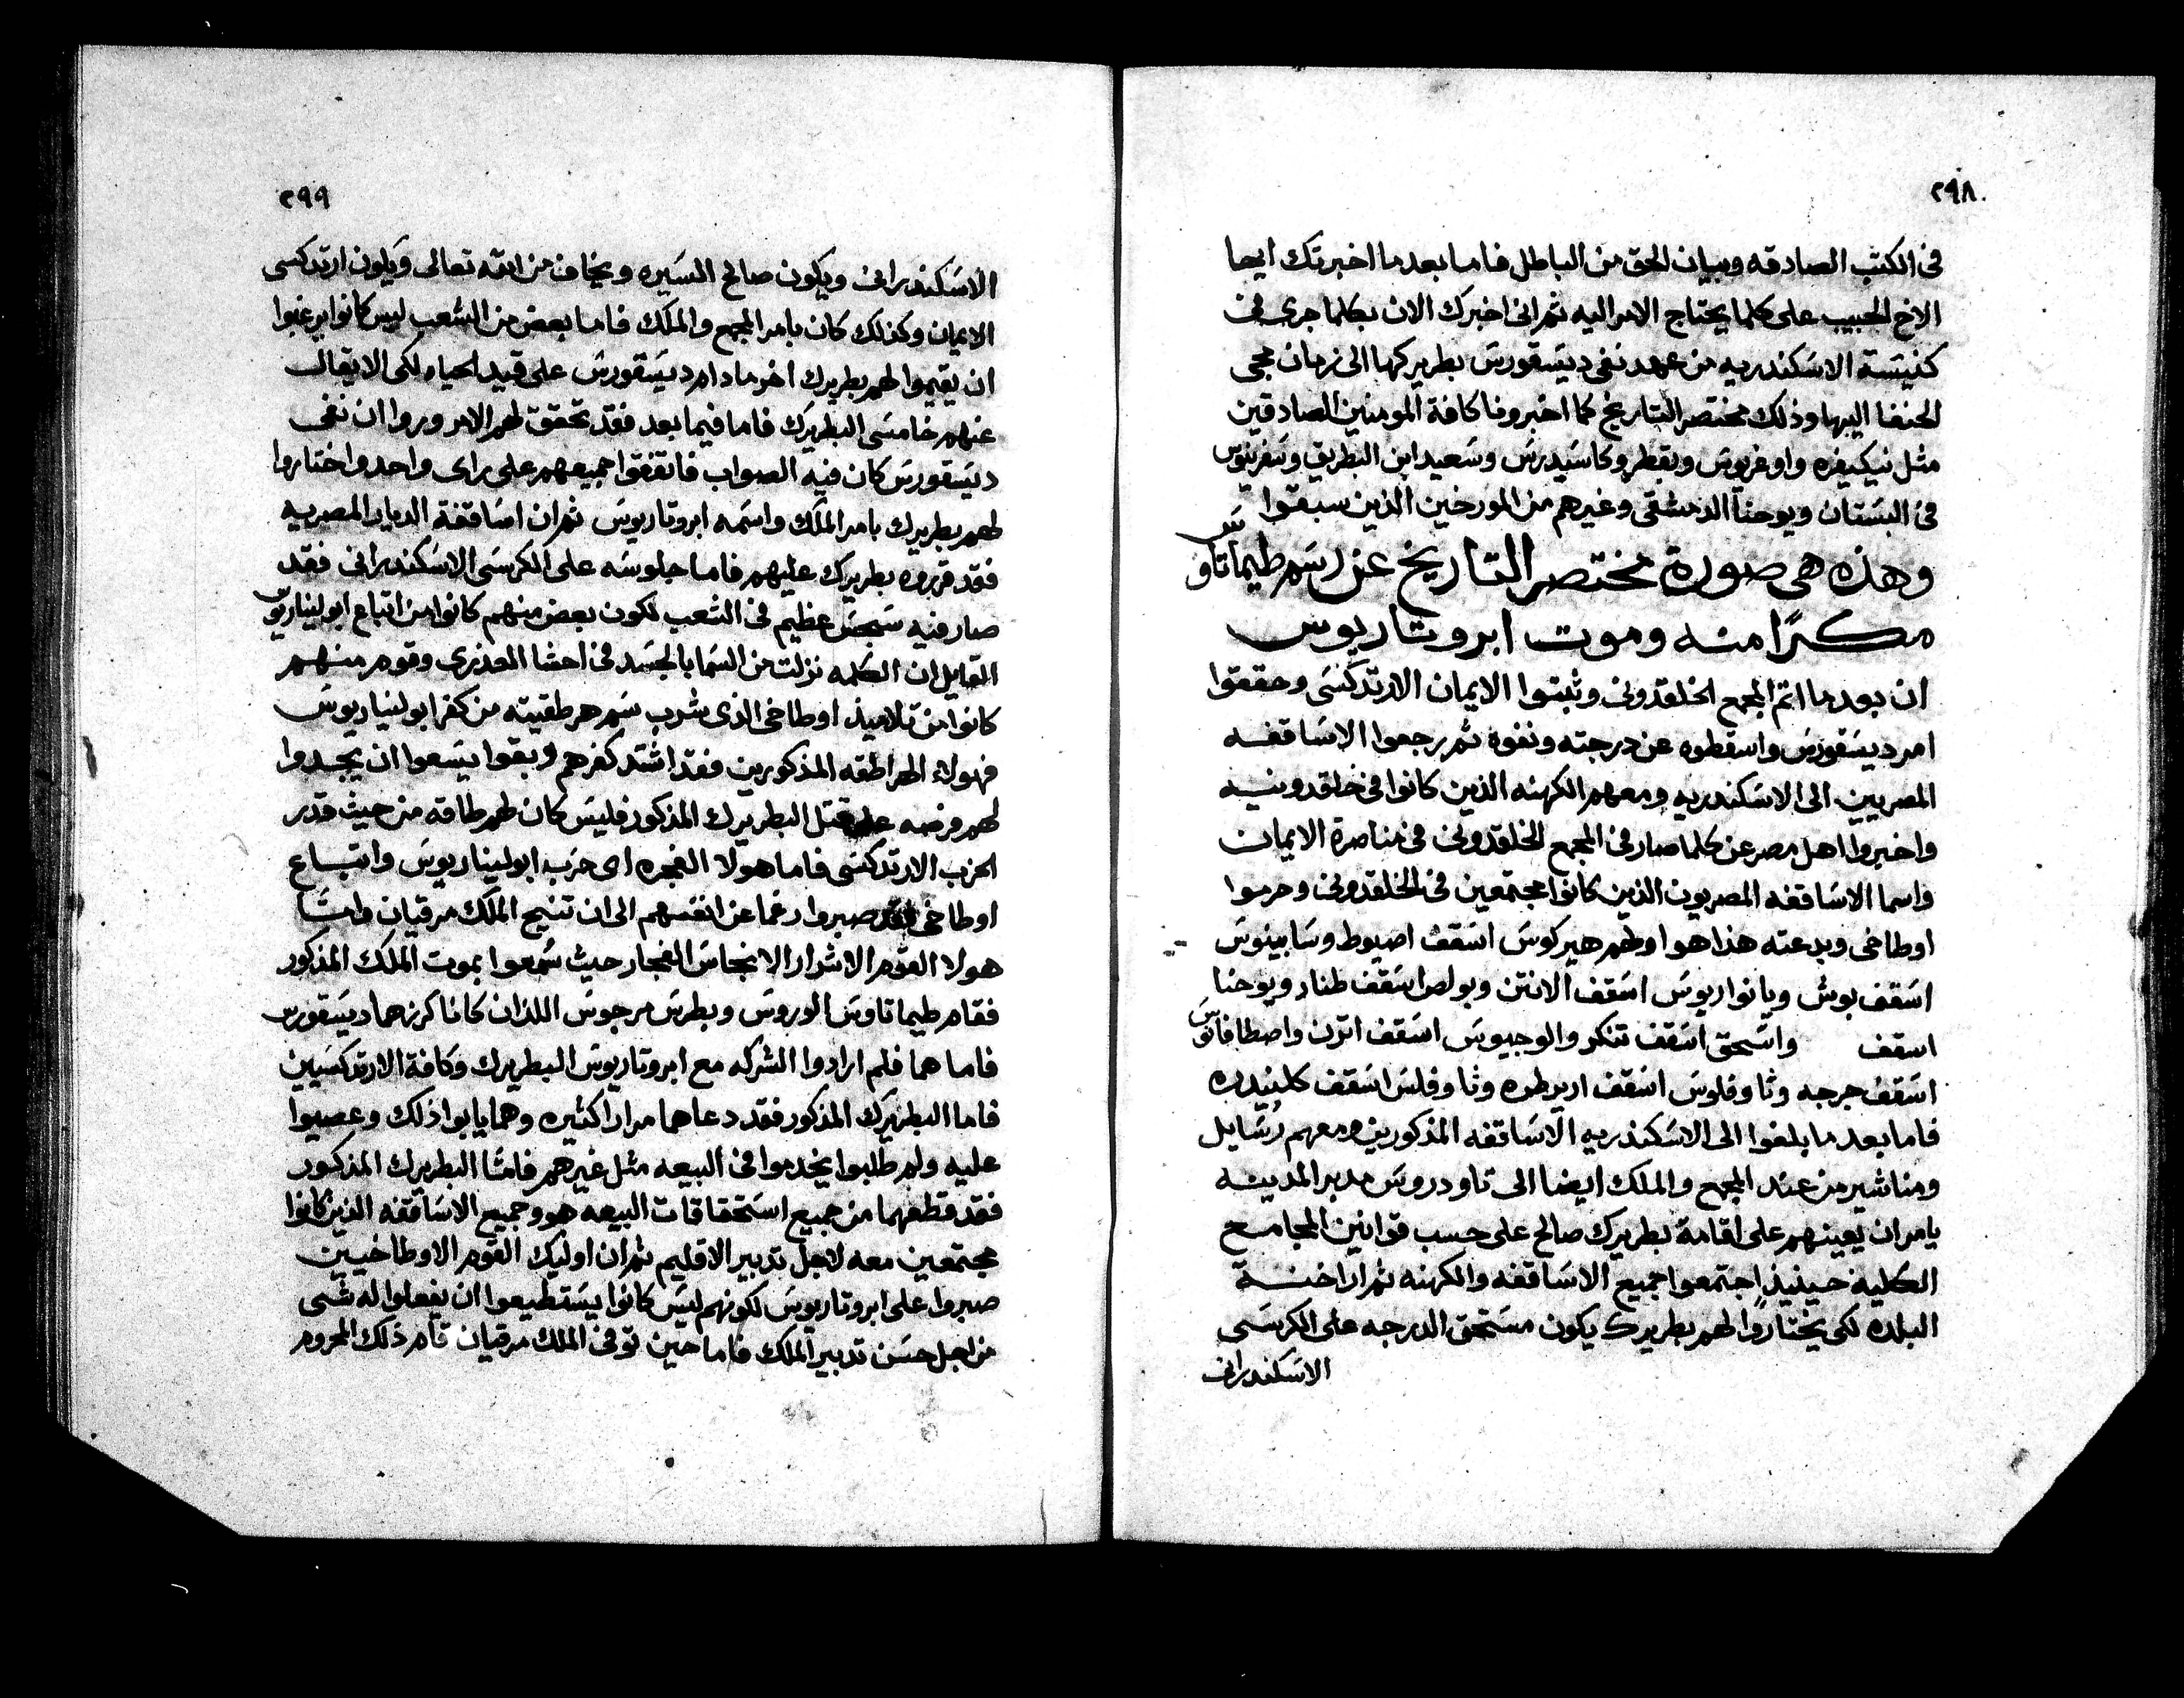 ٢٩٨
في الكتب الصادقه وبيان الحق من الباطل فاما بعد ما اخبرتك ايها
الاخ الحبيب على كلما يحتاج الامر اليه ثم اني اخبرك الان بكلما جرى في
كنيسة الاسكندريه من عهد نفي ديسقورس بطريركها الى زمان مجي
الحنفا اليها وذلك مختصر التاريخ كما اخبرونا كافة المومنين الصادقين
مثل نيكيفره واوغريوس وبقطر وسعيد ابن البطريق
في البستان ويوحنا الدمشقي وغيرهم من المورخين الذين سبقوا
وهذه هي صورة مختصر التاريخ عن رسم طيماتاوس
مكرًا منه وموت ابروتاريوس
ان بعد ما اتم المجمع الخلقدوني وثبتوا الايمان الارتدكسي وحققوا
امر ديسقورس واسقطوه عن درجته ونفوه ثم رجعوا الاساقفه
المصريين الى الاسكندريه ومعهم الكهنه الذين كانوا في خلقدونيه
واخبروا اهل مصر عن كلما صار في المجمع الخلقدوني في مناصرة الايمان
واسما الاساقفه المصريون الذين كانوا مجتمعين في الخلقدوني وحرموا
اوطاخي وبدعته هذا هو اولهم هيركوس اسقف اصيوط وسابينوس
اسقف بوش ويانواريوس اسقف الانتن وبولص اسقف طناد ويوحنا
اسقف واسحق اسقف تنكر والوجيوس اسقف اترن واصطافانوس
اسقف جرجه وثاوفلوس اسقف اربرطوه وثاوفلس اسقف كلنيدره
فاما بعد ما بلغوا الى الاسكندريه الاساقفه المذكورين ومعهم رسايل
ومناشير من عند المجمع والملك ايضا الى تاودروس مدبر المدينه
يامر ان يعينهم على اقامة بطريرك صالح على حسب قوانين المجامع
الكلية حينيذ اجتمعوا جميع الاساقفه والكهنه ثم اراخنة
البلده لكي يختاروا لهم بطريرك يكون مستحق الدرجه على الكرسي
الاسكندراني
٢٩٩
الاسكندراني ويكون صالح السيره ويخاف من الله تعالى ويكون ارتدكسي
الايمان وكذلك كان بامر المجمع والملك فاما بعض من الشعب ليس كانوا يرغبوا
ان يقيموا لهم بطريرك اخر مادام ديسقورس على قيد الحياه لكي لا يقال
عنهم خامسى البطريرك فاما فيما بعد فقد تحقق لهم الامر وروا ان نفي
ديسقورس كان فيه الصواب فاتفقوا جميعهم على راى واحد واختاروا
لهم بطريرك بامر الملك واسمه ابروتاريوس ثم ان اساقفة الديار المصريه
فقد قرروه بطريرك عليهم فاما جلوسه على الكرسي الاسكندراني فقد
صار فيه سجس عظيم في الشعب لكون بعض منهم كانوا من اتباع ابوليناريوس
القايل ان الكلمه نزلت من السما بالجسد في احشا العذرى وقوم منهم
كانوا من تلاميذ اوطاخي الذي شرب سم هرطقيته من كفر ابوليناريوس
فهولاء الهراطقه المذكورين فقد اشتد كفرهم وبقوا يسعوا ان يجدوا
لهم فرصه على قتل البطريرك المذكور فليس كان لهم طاقه من حيث قدر
الحزب الارتدكسي فاما هولا الفجره اى حزب ابوليناريوس واتباع
اوطاخي فقد صبروا رغما عن انفسهم الى ان تنيح الملك مرقيان وامتا
هولا القوم الاشرار الانجاس الفجار حيث سُمعوا بموت الملك المذكور
فقام طيماتاوس الوروس وبطرس مرجوس اللذان كانا كرزهما ديسقورس
فاما هما فلم ارادوا الشركه مع ابروتاريوس البطريرك وكافة الارتدكسيين
فاما البطريرك المذكور فقد دعاهما مرارا كثيره وهما يابوا ذلك وعصيوا
عليه ولم طلبوا يخدموا في البيعه مثل غيرهم فامّا البطريرك المذكور
فقد قطعهما من جميع استحقاقات البيعه هو وجميع الاساقفه الذين كانوا
مجتمعين معه لاجل تدبير الاقليم ثم ان اوليك القوم الاوطاخيين
صبروا على ابروتاريوس لكونهم ليس كانوا يستطيعوا ان يفعلوا له شى
من اجل حسن تدبير الملك فاما حين توفي الملك مرقيان قام ذلك المحروم